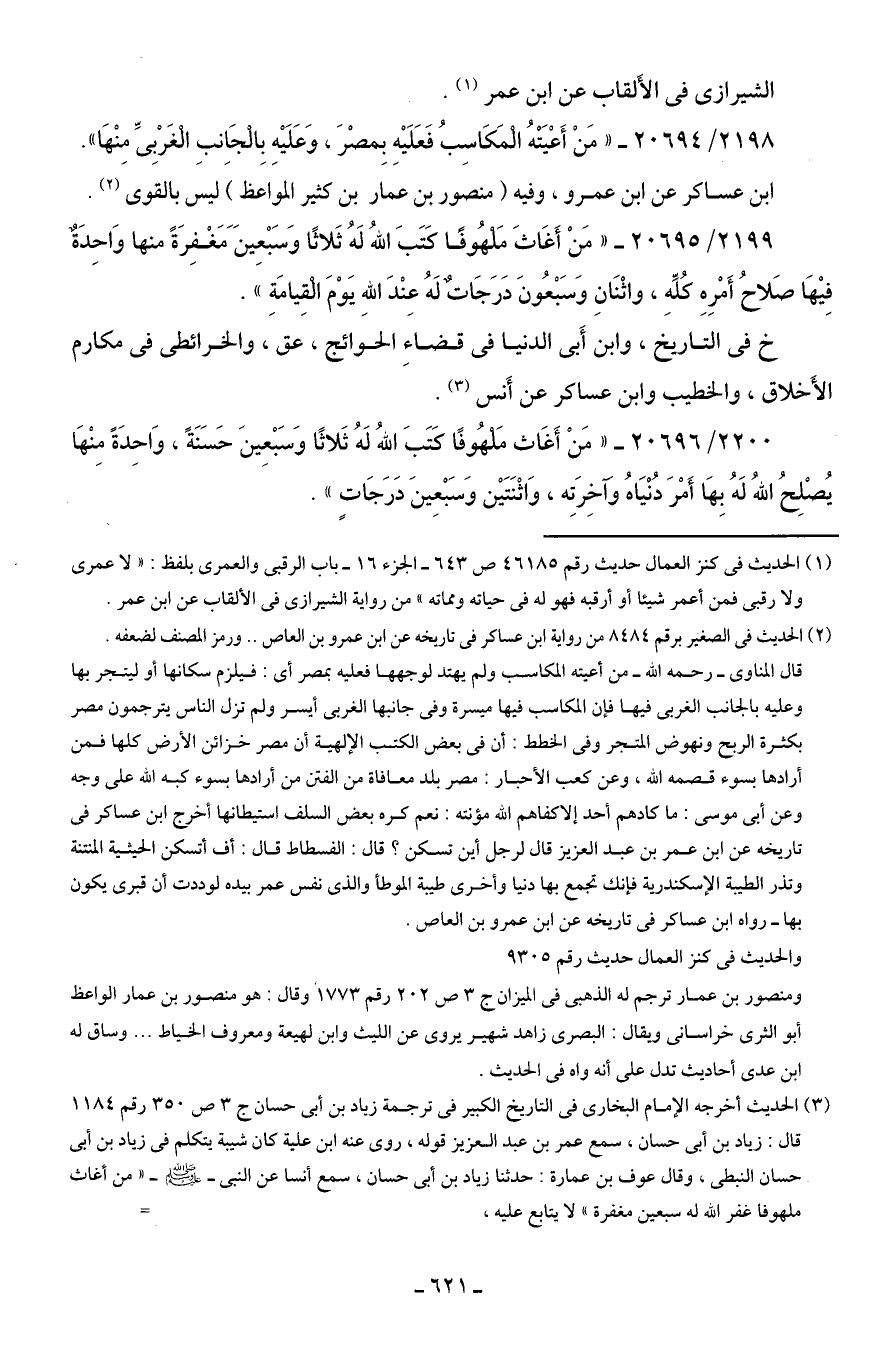 الشيرازى فى الألقاب عن ابن عمر (١) .
٢١٩٨/ ٢٠٦٩٤ ـ « مَنْ أَعْيَتْهُ الْمَكَاسِبُ فَعَلَيْهِ بِمِصْرَ ، وَعَلَيْهِ بِالْجَانِبِ الْغَرْبِىِّ مِنْهَا».
ابن عساكر عن ابن عمرو ، وفيه ( منصور بن عمار بن كثير المواعظ ) ليس بالقوى (٢) .
٢١٩٩/ ٢٠٦٩٥ ـ « مَنْ أَغَاثَ مَلْهُوفًا كَتَبَ اللهُ لَهُ ثَلاثًا وَسَبْعِينَ مَغْفِرَةً منها وَاحِدَةٌ
فِيْهَا صَلاَحُ أَمْرِهِ كُلِّهِ ، واثْنَانِ وَسَبْعُونَ دَرَجَاتٌ لَهُ عِنْدَ اللهِ يَوْمَ الْقِيامَةِ » .
خ فى التاريخ ، وابن أبى الدنيا فى قضاءِ الحوائج ، عق ، والخرائطى فى مكارم
الأخلاق ، والخطيب وابن عساكر عن أنس (٣) .
٢٢٠٠/ ٢٠٦٩٦ ـ « مَنْ أَغَاثَ مَلْهُوفًا كَتَبَ اللهُ لَهُ ثَلاثًا وَسَبْعِينَ حَسَنَةً ، وَاحِدَةً مِنْهَا
يُصْلِحُ اللهُ لَهُ بِهَا أَمْرَ دُنْيَاهُ وَآخِرَتِهِ ، وَاثْنَتَيْنِ وَسَبْعِينَ دَرَجَاتٍ » .
(١) الحديث فى كنز العمال حديث رقم ٤٦١٨٥ ص ٦٤٣ ـ الجزء ١٦ ـ باب الرقبى والعمرى بلفظ : « لا عمرى
ولا رقبى فمن أعمر شيئا أو أرقبه فهو له فى حياته ومماته » من رواية الشيرازى فى الألقاب عن ابن عمر .
(٢) الحديث فى الصغير برقم ٨٤٨٤ من رواية ابن عساكر فى تاريخه عن ابن عمرو بن العاص .. ورمز المصنف لضعفه .
قال المناوى ـ رحمه الله ـ من أعيته المكاسب ولم يهتد لوجهها فعليه بمصر أى : فيلزم سكانها أو ليتجر بها
وعليه بالجانب الغربى فيها فإن المكاسب فيها ميسرة وفى جانبها الغربى أيسر ولم تزل الناس يترجمون مصر
بكثرة الربح ونهوض المتجر وفى الخطط : أن فى بعض الكتب الإلهية أن مصر خزائن الأرض كلها فمن
أرادها بسوء قصمه الله ، وعن كعب الأحبار : مصر بلد معافاة من الفتن من أرادها بسوء كبه الله على وجه
وعن أبى موسى : ما كادهم أحد إلاكفاهم الله مؤنته : نعم كره بعض السلف استيطانها أخرج ابن عساكر فى
تاريخه عن ابن عمر بن عبد العزيز قال لرجل أين تسكن ؟ قال : الفسطاط قال : أف أتسكن الخبيثة المنتنة
وتذر الطيبة الإسكندرية فإنك تجمع بها دنيا وأخرى طيبة الموطأ والذى نفس عمر بيده لوددت أن قبرى يكون
بها ـ رواه ابن عساكر فى تاريخه عن ابن عمرو بن العاص .
والحديث فى كنز العمال حديث رقم ٩٣٠٥
ومنصور بن عمار ترجم له الذهبى فى الميزان ج ٣ ص ٢٠٢ رقم ١٧٧٣ وقال : هو منصور بن عمار الواعظ
أبو الثرى خراسانى ويقال : البصرى زاهد شهير يروى عن الليث وابن لهيعة ومعروف الخياط ... وساق له
ابن عدى أحاديث تدل على أنه واه فى الحديث .
(٣) الحديث أخرجه الإمام البخارى فى التاريخ الكبير فى ترجمة زياد بن أبى حسان ج ٣ ص ٣٥٠ رقم ١١٨٤
قال : زياد بن أبى حسان ، سمع عمر بن عبد العزيز قوله ، روى عنه ابن علية كان شيبة يتكلم فى زياد بن أبى
حسان النبطى ، وقال عوف بن عمارة : حدثنا زياد بن أبى حسان ، سمع أنسا عن النبى ـ ﷺ ـ « من أغاث
ملهوفا غفر الله له سبعين مغفرة » لا يتابع عليه ، =
ـ ٦٢١ ـ